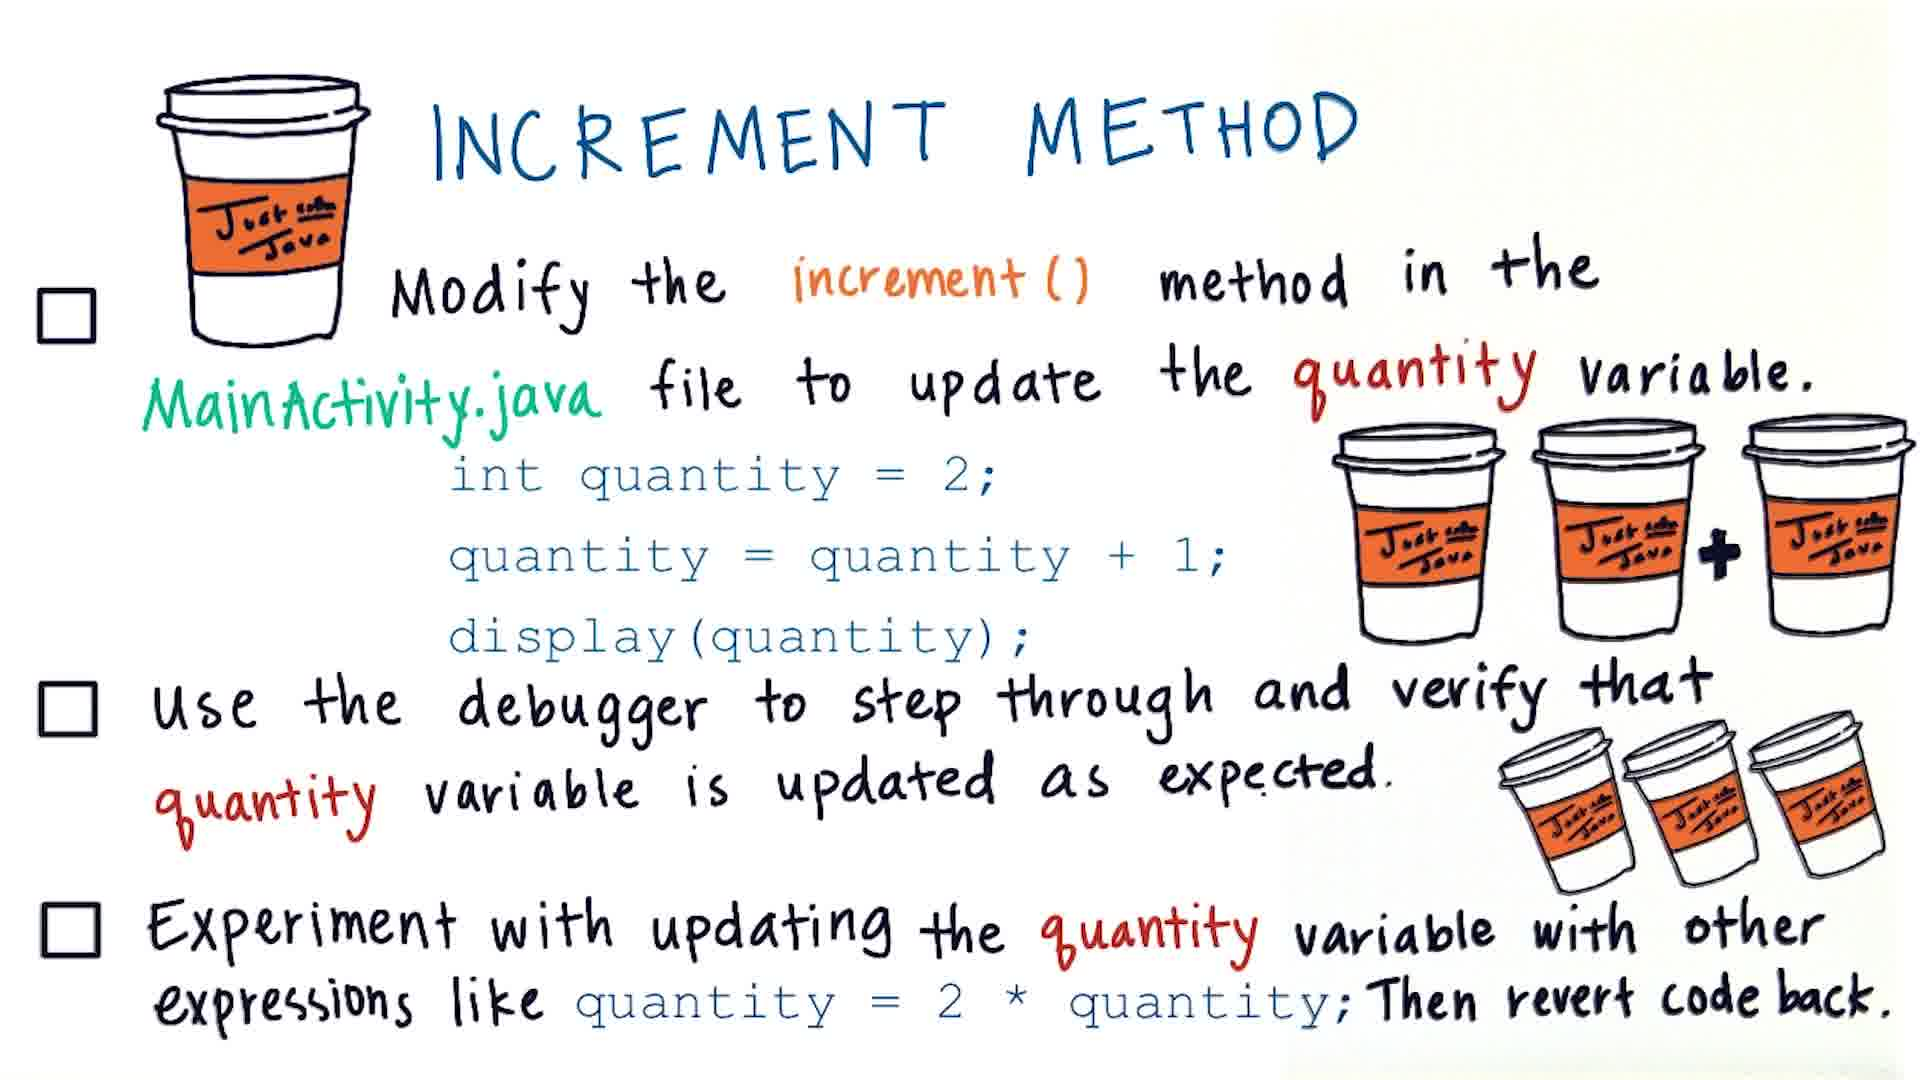 INCREMENT METHOD
Just coffee
Java
Modify the increment() method in the
MainActivity.java file to update the quantity variable.
int quantity = 2;
quantity = quantity + 1;
display(quantity);
Just coffee
Java
Just coffee
Java
+
Just coffee
Java
Use the debugger to step through and verify that
quantity variable is updated as expected.
Just coffee
Java
Just coffee
Java
Just coffee
Java
Experiment with updating the quantity variable with other
expressions like quantity = 2 * quantity; Then revert code back.